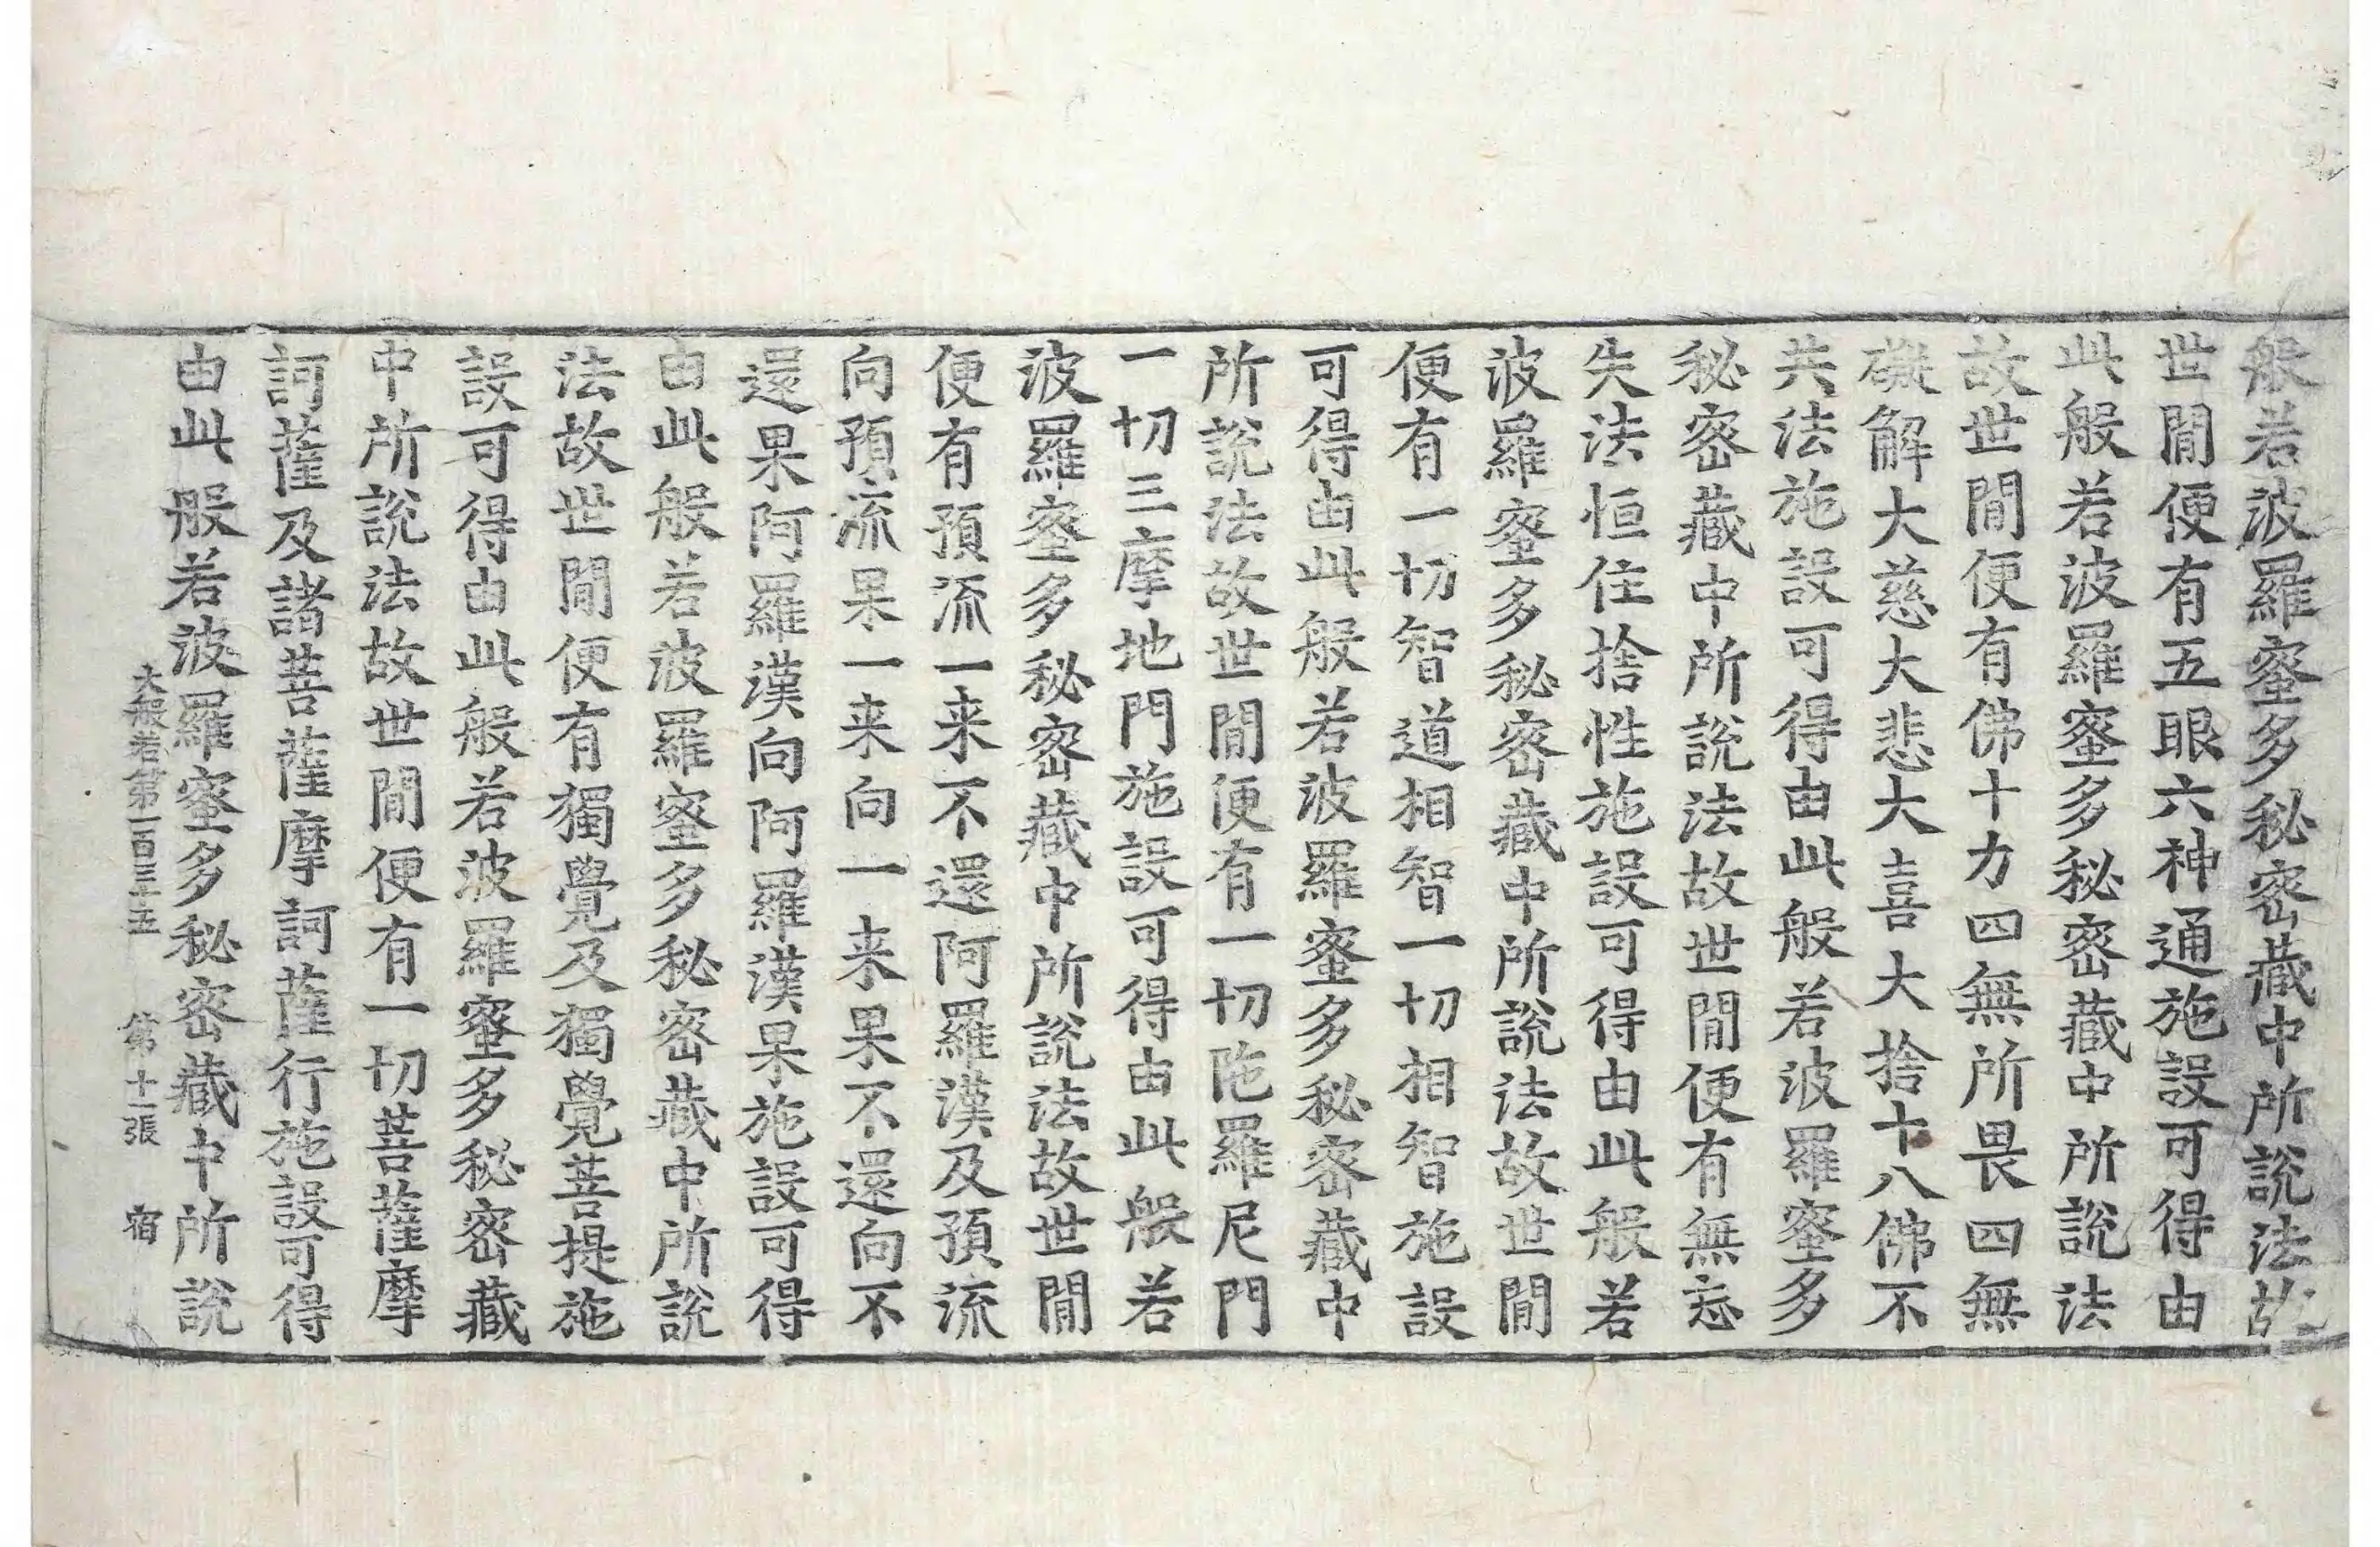 般若波羅蜜多秘密藏中所說法故
世閒便有五眼六神通施設可得由
此般若波羅蜜多秘密藏中所說法
故世閒便有佛十力四無所畏四無
礙解大慈大悲大喜大捨十八佛不
共法施設可得由此般若波羅蜜多
秘密藏中所說法故世閒便有無忘
失法恒住捨性施設可得由此般若
波羅蜜多秘密藏中所說法故世閒
便有一切智道相智一切相智施設
可得由此般若波羅蜜多秘密藏中
所說法故世閒便有一切陁羅尼門
一切三摩地門施設可得由此般若
波羅蜜多秘密藏中所說法故世閒
便有預流一来不還阿羅漢及預流
向預流果一来向一来果不還向不
還果阿羅漢向阿羅漢果施設可得
由此般若波羅蜜多秘密藏中所說
法故世閒便有獨覺及獨覺菩提施
設可得由此般若波羅蜜多秘密藏
中所說法故世閒便有一切菩薩摩
訶薩及諸菩薩摩訶薩行施設可得
由此般若波羅蜜多秘密藏中所說
大般若第一百三十五 第十一張 宿